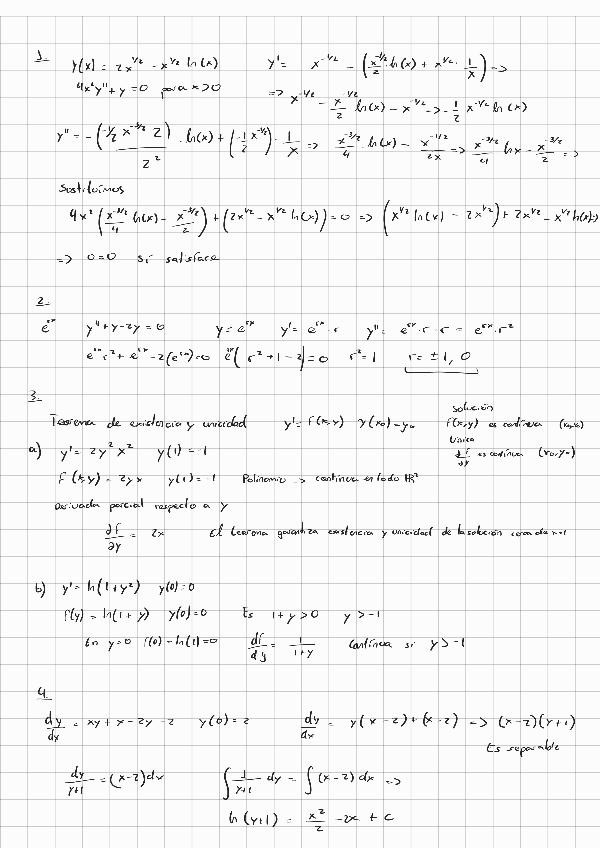 1. y(x) = 2x^{1/2} - x^{1/2} ln(x) y' = x^{-1/2} - (x^{-1/2}/2 · ln(x) + x^{1/2} · 1/x) =>
4x²y'' + y = 0 para x>0 => x^{-1/2} - x^{-1/2}/2 ln(x) - x^{-1/2} -> -1/2 x^{-1/2} ln(x)
y'' = -(-1/2 x^{-3/2} 2)/2² · ln(x) + (-1/2 x^{-1/2}) · 1/x => x^{-3/2}/4 · ln(x) - x^{-1/2}/2x => x^{-3/2}/4 ln x - x^{-3/2}/2 =>
Sustituimos
4x² (x^{-3/2}/4 ln(x) - x^{-3/2}/2) + (2x^{1/2} - x^{1/2} ln(x)) = 0 => (x^{1/2} ln(x) - 2x^{1/2}) + 2x^{1/2} - x^{1/2} ln(x)
=> 0=0 si satisface
2.
e^{rx} y'' + y - 2y = 0 y = e^{rx} y' = e^{rx} · r y'' = e^{rx} · r · r = e^{rx} · r²
e^{rx} r² + e^{rx} - 2(e^{rx}) = 0 e^{rx}(r² + 1 - 2) = 0 r² = 1 r = ±1, 0
3.
Teorema de existencia y unicidad y' = f(x,y) y(x₀) = y₀ solución f(x,y) es continua (x₀,y₀)
única df/dy es continua (x₀,y₀)
a) y' = 2y²x² y(1) = -1
f(x,y) = 2yx y(1) = -1 Polinomio -> continua en todo R²
Derivada parcial respecto a y
∂f/∂y = 2x El teorema garantiza existencia y unicidad de la solución cerca de x=1
b) y' = ln(1+y²) y(0)=0
f(y) = ln(1+y) y(0)=0 Es 1+y>0 y>-1
En y=0 f(0) = ln(1) = 0 df/dy = 1/(1+y) Continua si y>-1
4.
dy/dx = xy + x - 2y - 2 y(0) = 2 dy/dx = y(x-2) + (x-2) -> (x-2)(y+1)
Es separable
dy/(y+1) = (x-2)dx ∫ 1/(y+1) dy = ∫ (x-2) dx =>
ln(y+1) = x²/2 - 2x + C